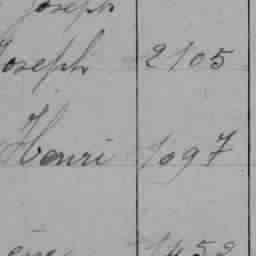 Joseph
Joseph 2105
Henri 1097